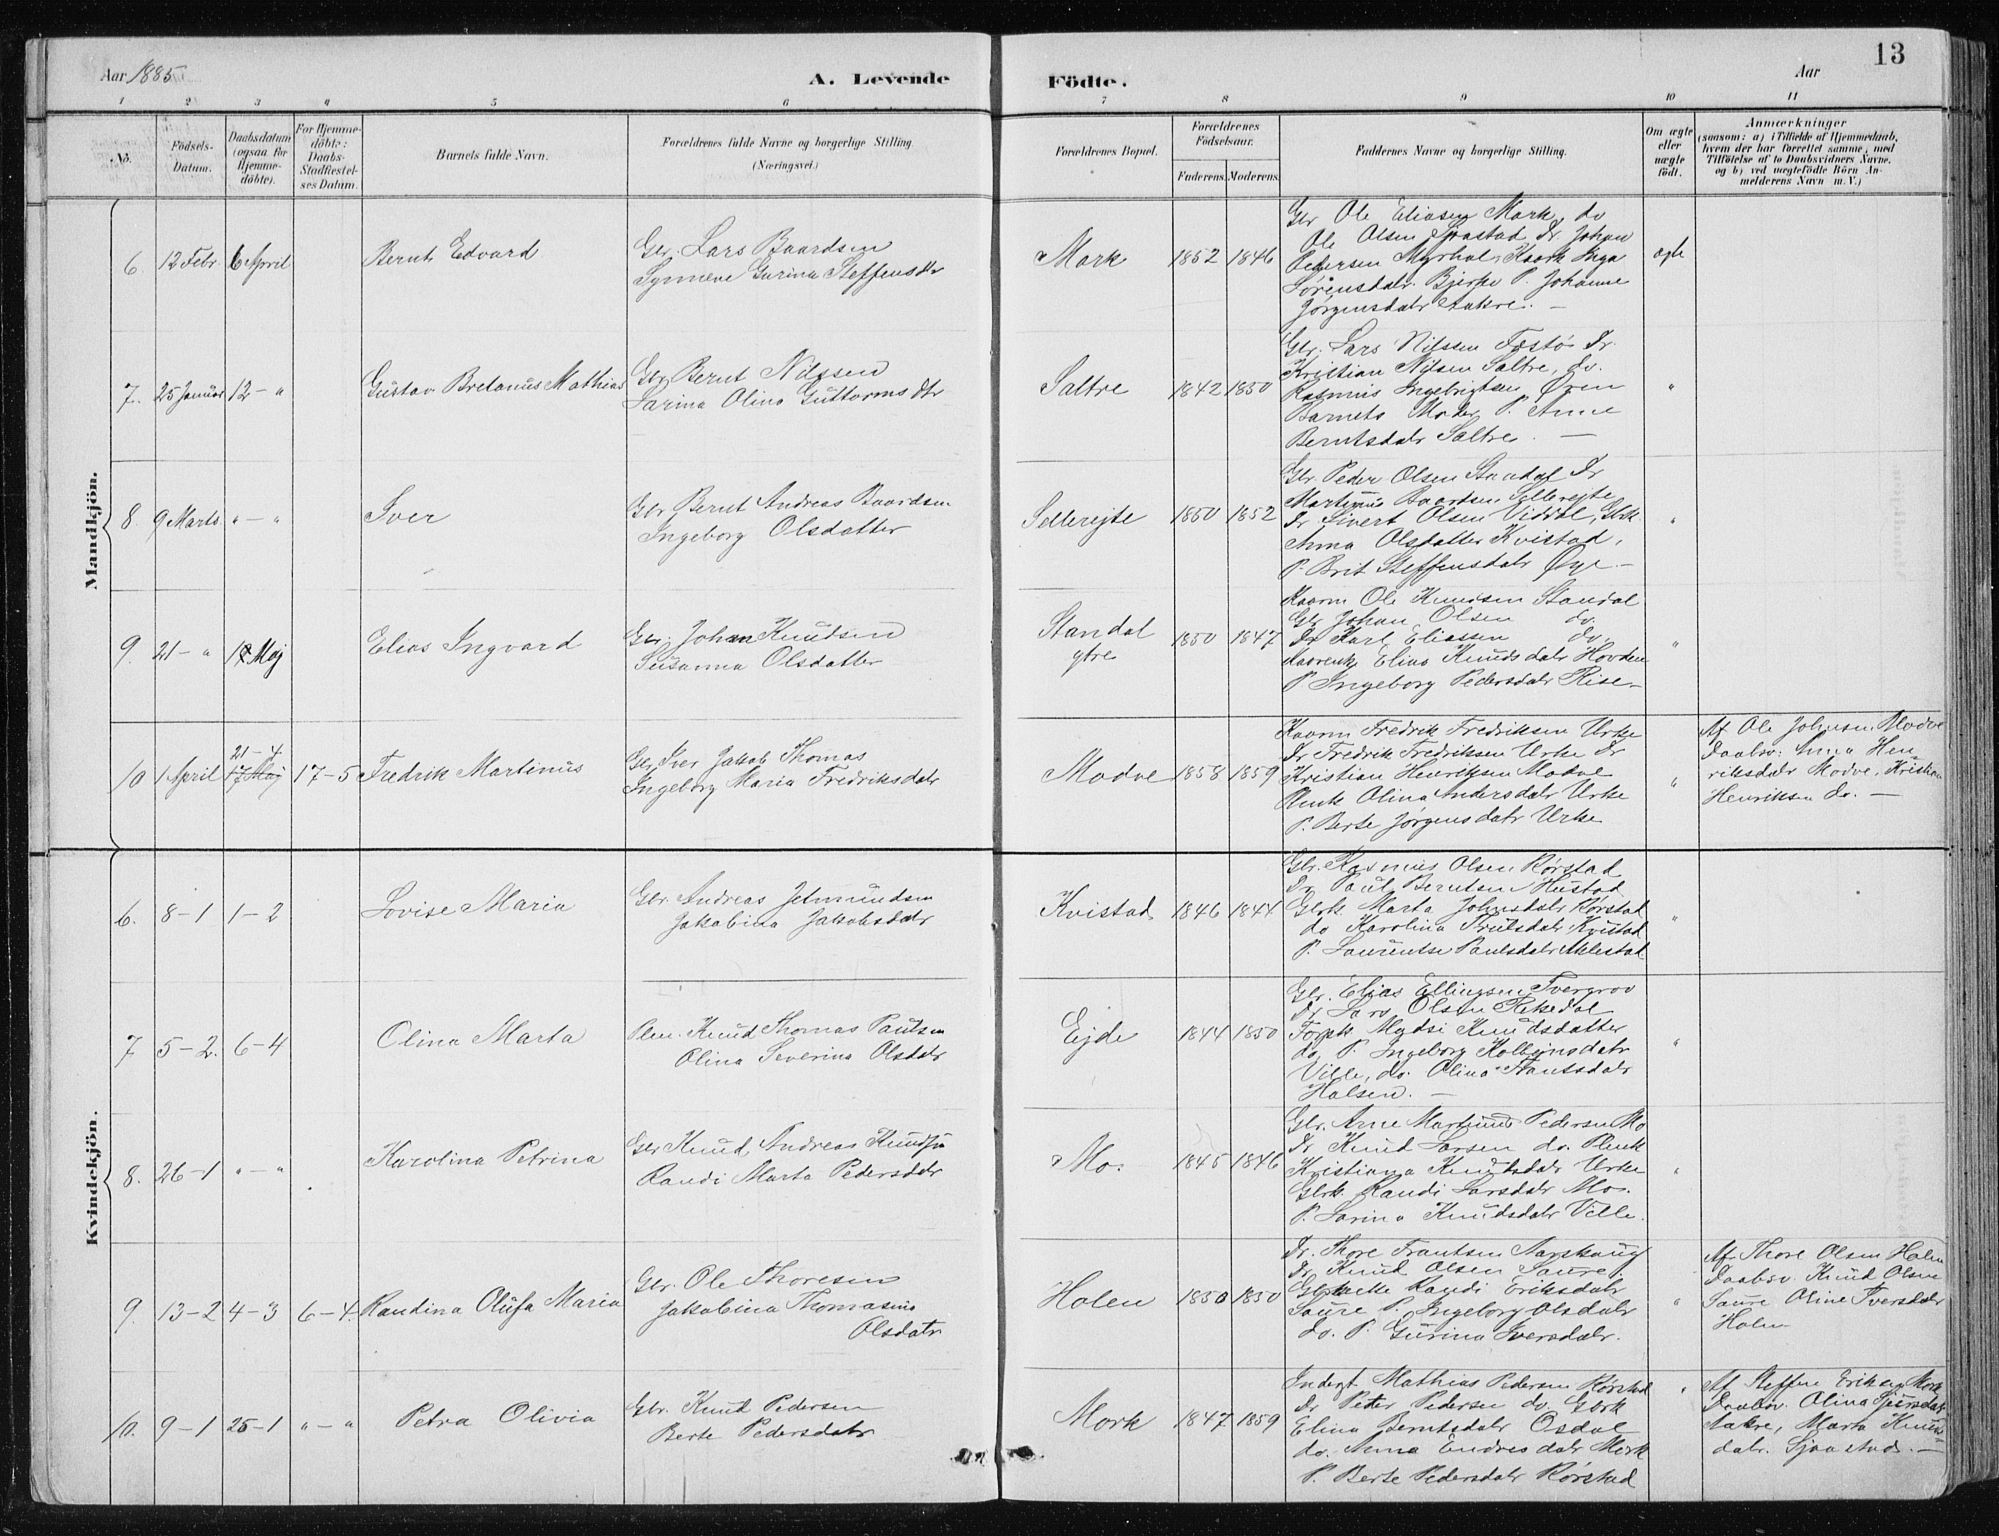 Aar 1885
A. Levende Födte.
Aar
13
1 2 3 4 5 6 7 8 9 10 11
No.
Födsels-Datum.
Daabsdatum (ogsaa for Hjemme-döbte).
For Hjemme-döbte: Daabs-Stadfæstel-ses Datum.
Barnets fulde Navn.
Forældrenes fulde Navne og borgerlige Stilling (Næringsvei.)
Forældrenes Bopæl.
Forældrenes Födselsaar.
Faderens. Moderens.
Faddernes Navne og borgerlige Stilling.
Om ægte eller uægte födt.
Anmærkninger
(saasom: a) i Tilfælde af Hjemmedaab, hvem der har forrettet samme, med Tilföielse af to Daabsvidners Navne. og b) ved uægtefödte Börn An-melderens Navn m. V.)
Mandkjön.
6. 12 Febr. 6 April
Bernt Edvard
Gbr. Lars Baardsen
Synneve Gurina Steffensdtr
Mork
1852 1846
Gbr Ole Eliasen Mork, do
Ole Olsen Sjaastad, Dr. Johan
Pedersen Myrhol, Kaark Inga
Sørensdatr. Bjerke P. Johanne
Jørgensdatr Aakre. —
ægte
7. 25 Januar 12 – "
Gustav Bretanus Mathias
Gbr Bernt Nilssen
Sarina Olina Guttormsdtr
Saltre
1842 1850
Gbr. Lars Nilssen Fostø Dr.
Kristian Nilsen Saltre, do.
Rasmus Ingebrigtsen Øren
Barnets Moder P. Anne
Berntsdatr Saltre. —
"
8 9 Marts " – "
Iver
Gbr Bernt Andreas Baardsen
Ingeborg Olsdatter
Sellerejte
1850 1852
Gbr. Peder Olsen Standal Dr
Martinus Baardsen Sellerejte
Dr Sivert Olsen Viddal, Gbrk.
Anna Olsdatter Kvistad,
P. Brit Steffensdatr Øye. —
"
9. 21 – " 17 Maj
Elias Ingvard
Gbr. Johan Knudsen
Susanna Olsdatter
Standal ytre
1850 1847
Kaarm Ole Knudsen Standal
Gbr Johan Olsen do.
Dr Karl Eliassen do.
Kaarenk Elias Knudsdatr Hovden
P Ingeborg Pedersdatr Rise —
"
10 1 April 21–4 17 Maj 17–5
Fredrik Martinus
Gbr Iver Jakob Thomas
Ingeborg Maria Fredriksdatr
Modve
1858 1859
Kaarm Fredrik Fredriksen Urke
Dr Fredrik Fredriksen Urke Dr
Kristian Henriksen Modve
Plenk Olina Andersdatr Urke
P. Berte Jørgensdatr Urke
"
Af Ole Johnsen Modve
Daabsv: Anna Hen-
riksdatr Modve, Kristian
Henriksen do. —
Kvindekjön.
6. 8–1 1–2
Lovise Maria
Gbr. Andreas Jetmundsen
Jakobina Jakobsdatr
Kvistad
1846 1844
Gbr. Rasmus Olsen Rørstad
Dr Paul Berntsen Hustad
Gbrk Marta Johnsdatr Rørstad
do Karolina Trulsdatr Kvistad
P. Laurentse Paulsdatr Melestad
"
7 5–2. 6–4
Olina Marta
Plen. Knud Thomas Paulsen
Olina Severina Olsdatr
Ejde
1844 1850
Gbr. Elias Ellingsen Tvergrov
Dr Lars Olsen Rekedal
Forpk Madsi Knudsdatter
do, P. Ingeborg Kolbejnsdatr
Ville, do. Olina Frantsdatr
Holsen. —
"
8. 26–1 " – "
Karolina Petrina
Gbr Knud Andreas Knudsen
Randi Marta Pedersdatr
Mo.
1845 1846
Gbr. Arne Martinus Pedersen Mo
Dr Knud Larsen do. Plenk
Kristiana Knudsdatr Urke
Gbrk. Randi Larsdatr Mo.
P. Sarina Knudsdatr Ville.
"
9. 13–2 4–3 6–4.
Randina Olufa Maria
Gbr. Ole Thoresen
Jakobina Thomasine
Olsdatr
Holen
1850 1850
Dr. Thore Frantsen Aarskaug
Dr. Knud Olsen Saure,
Gbrenke Randi Eriksdatr
Saure P. Ingeborg Olsdatr
do. P. Gurina Iversdatr.
"
Af Thore Olsen Holen
Daabsv. Knud Olsen
Saure Oline Iversdatr
Holen
10. 9–1 25–1 " – "
Petra Olivia
Gbr. Knud Pedersen
Berte Pedersdatr
Mork
1847 1859
Inderst Mathias Pedersen Rørstad
Dr Peter Pedersen do. Gbrk
Elina Berntsdatr Osdal
do. Anna Endresdatr Mork
P. Berte Pedersdatr Rørstad
"
Af Steffen Eriksen Mork
Daabsv. Olina Sjursdatr
Aakre, Marta Knuds-
datr. Sjaastad. —